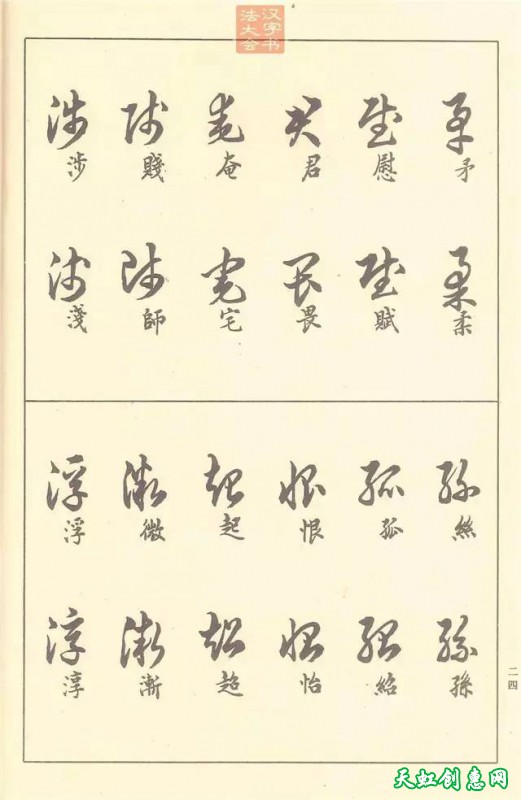 汉字书法大会
矛 慰 君 奄 賤 涉
柔 賦 畏 宅 師 淺
絲 孤 恨 起 微 浮
孫 紹 怡 超 漸 淳
二四
天虹创惠网